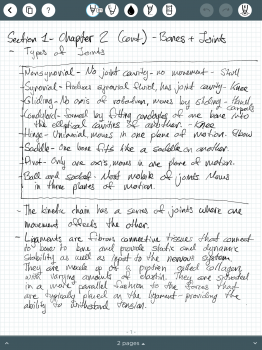 Section 1 - Chapter 2 (cont) - Bones + Joints
- Types of Joints
Nonsynovial - No joint cavity - no movement - Skull
Synovial - Produces synovial fluid, has joint cavity - Knee
Gliding - No axis of rotation, moves by sliding - carpals
Condyloid - formed by fitting condyles of one bone into
the elliptical cavities of another - Knee
Hinge - Uniaxial moves in one plane of motion. Elbow
Saddle - One bone fits like a saddle on another.
Pivot - Only one axis, moves in one plane of motion.
Ball and socket - Most mobile of joints Moves
in three planes of motion.
- The kinetic chain has a series of joints where one
movement affects the other.
- Ligaments are fibrous connective tissues that connect
bone to bone and provide static and dynamic
stability as well as input to the nervous system.
They are made up of a protein called collagen
with varying amounts of elastin. They are situated
in a more parallel fashion to the forces that
are typically placed on the ligament - providing the
ability to withstand tension.
- 1 -
2 pages